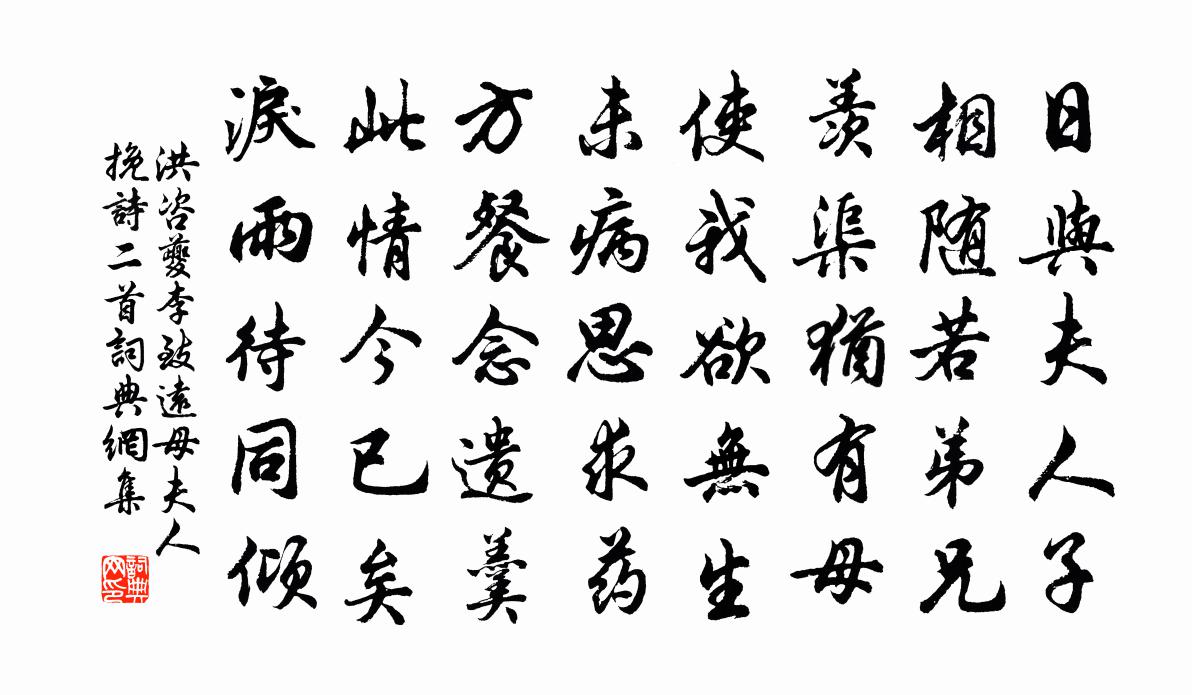 日與夫人子
相随若弟兄
羨渠猶有母
使我欲無生
未病思求药
方餐念遗羹
此情今已矣
淚雨待同倾
洪咨夔李致遠母夫人
挽詩二首詞典網集
詞典
网印